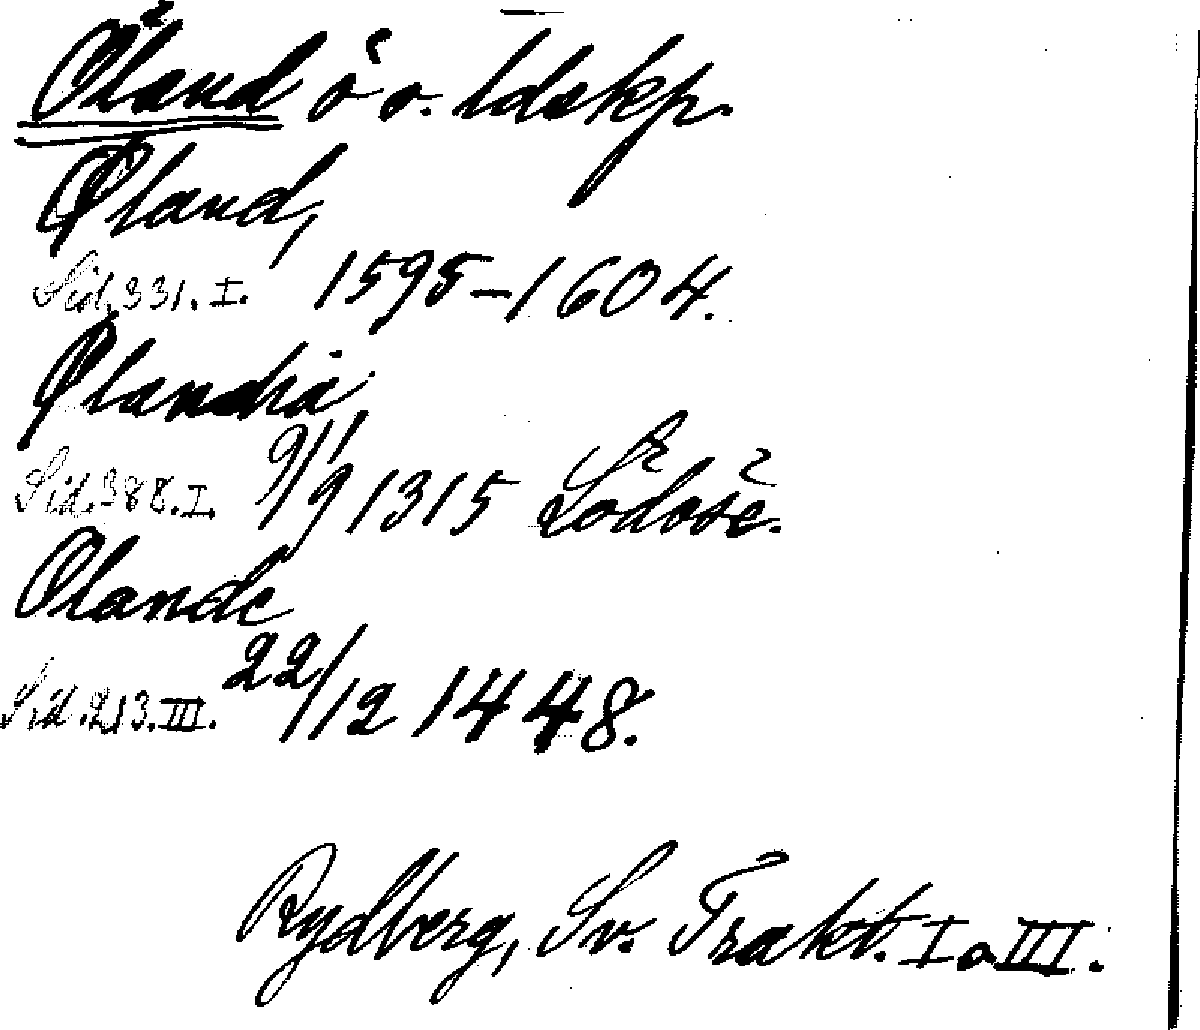 Öland ö o. ldskp.
Øland,
Sid. 331. I. 1595-1604.
Ølandia,
Sid. 388. I. 9/9 1315 Lödöse.
Olande
Sid. 213. III. 22/12 1448.
Rydberg, Sv. Trakt. I o III.